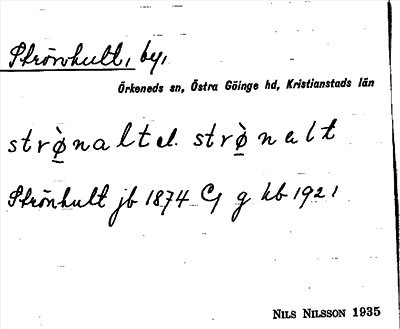 Strönhult, by,
Örkeneds sn, Östra Göinge hd, Kristianstads län
strø̀nalt el. strø̀nalt
Strönhult jb 1874 g kb 1921
NILS NILSSON 1935